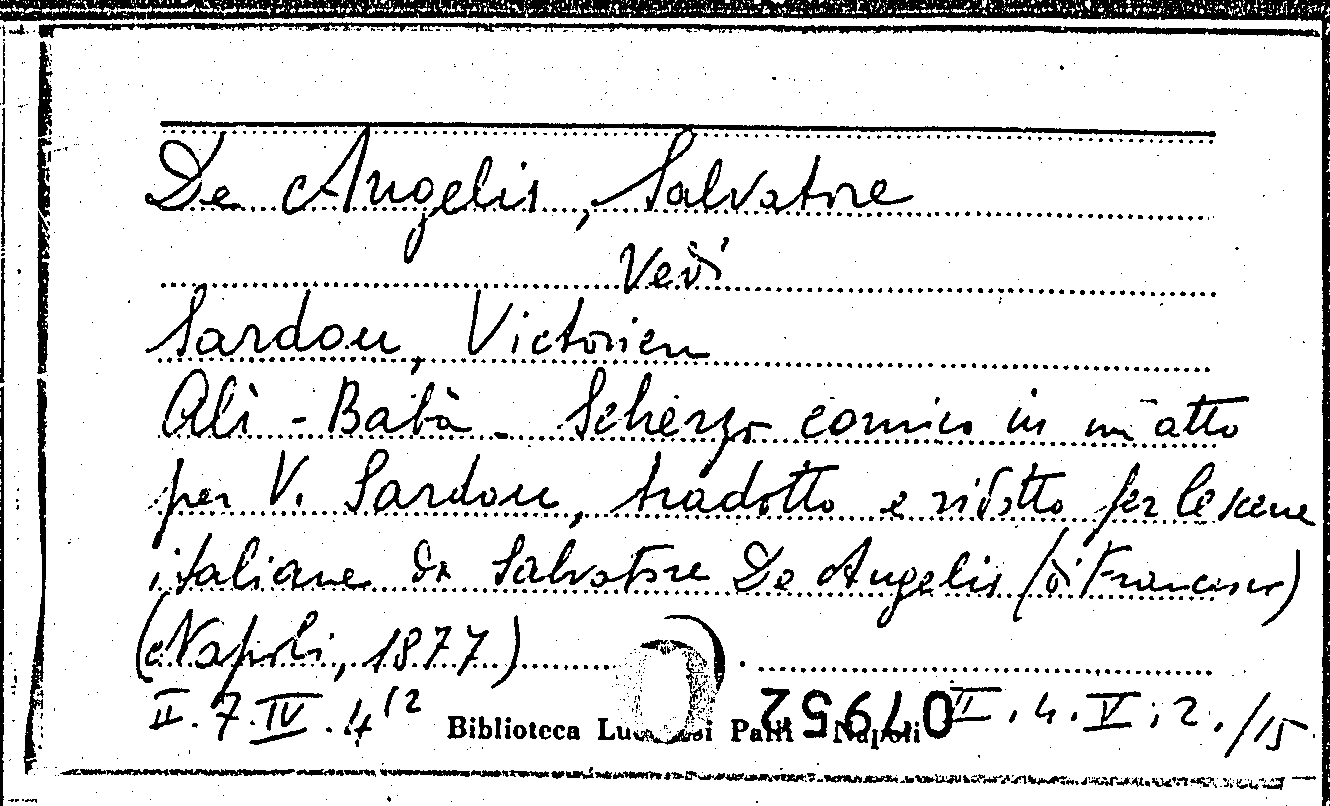 De Angelis, Salvatore
Vedi
Sardou, Victorien
Alì - Babà - Scherzo comico in un atto
per V. Sardou, tradotto e ridotto per le scene
italiane da Salvatore De Angelis (di Francesco)
(Napoli, 1877)
II. 7. IV. 4 12
Biblioteca Lucchesi Palli - Napoli
07952
II. 4. V. 2. /15